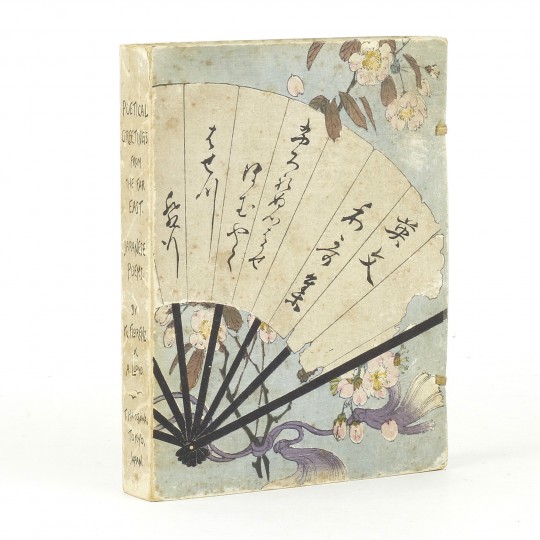 POETICAL
GREETINGS
FROM
THE FAR
EAST.
JAPANESE
POEMS.
BY
K. FLORENZ
&
A. LLOYD
T. HASEGAWA,
TOKYO,
JAPAN
英文
和哥集
ほむやく
はせ川